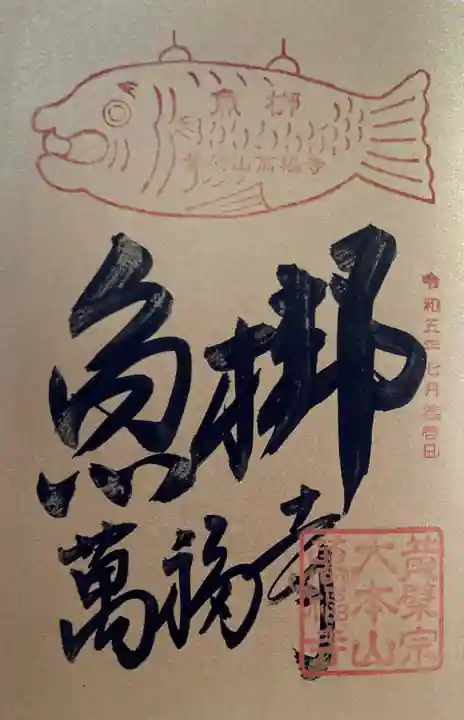 魚梆
黄檗山萬福寺
魚梆
萬福寺
令和五年七月 日
黄檗宗
大本山
萬福寺